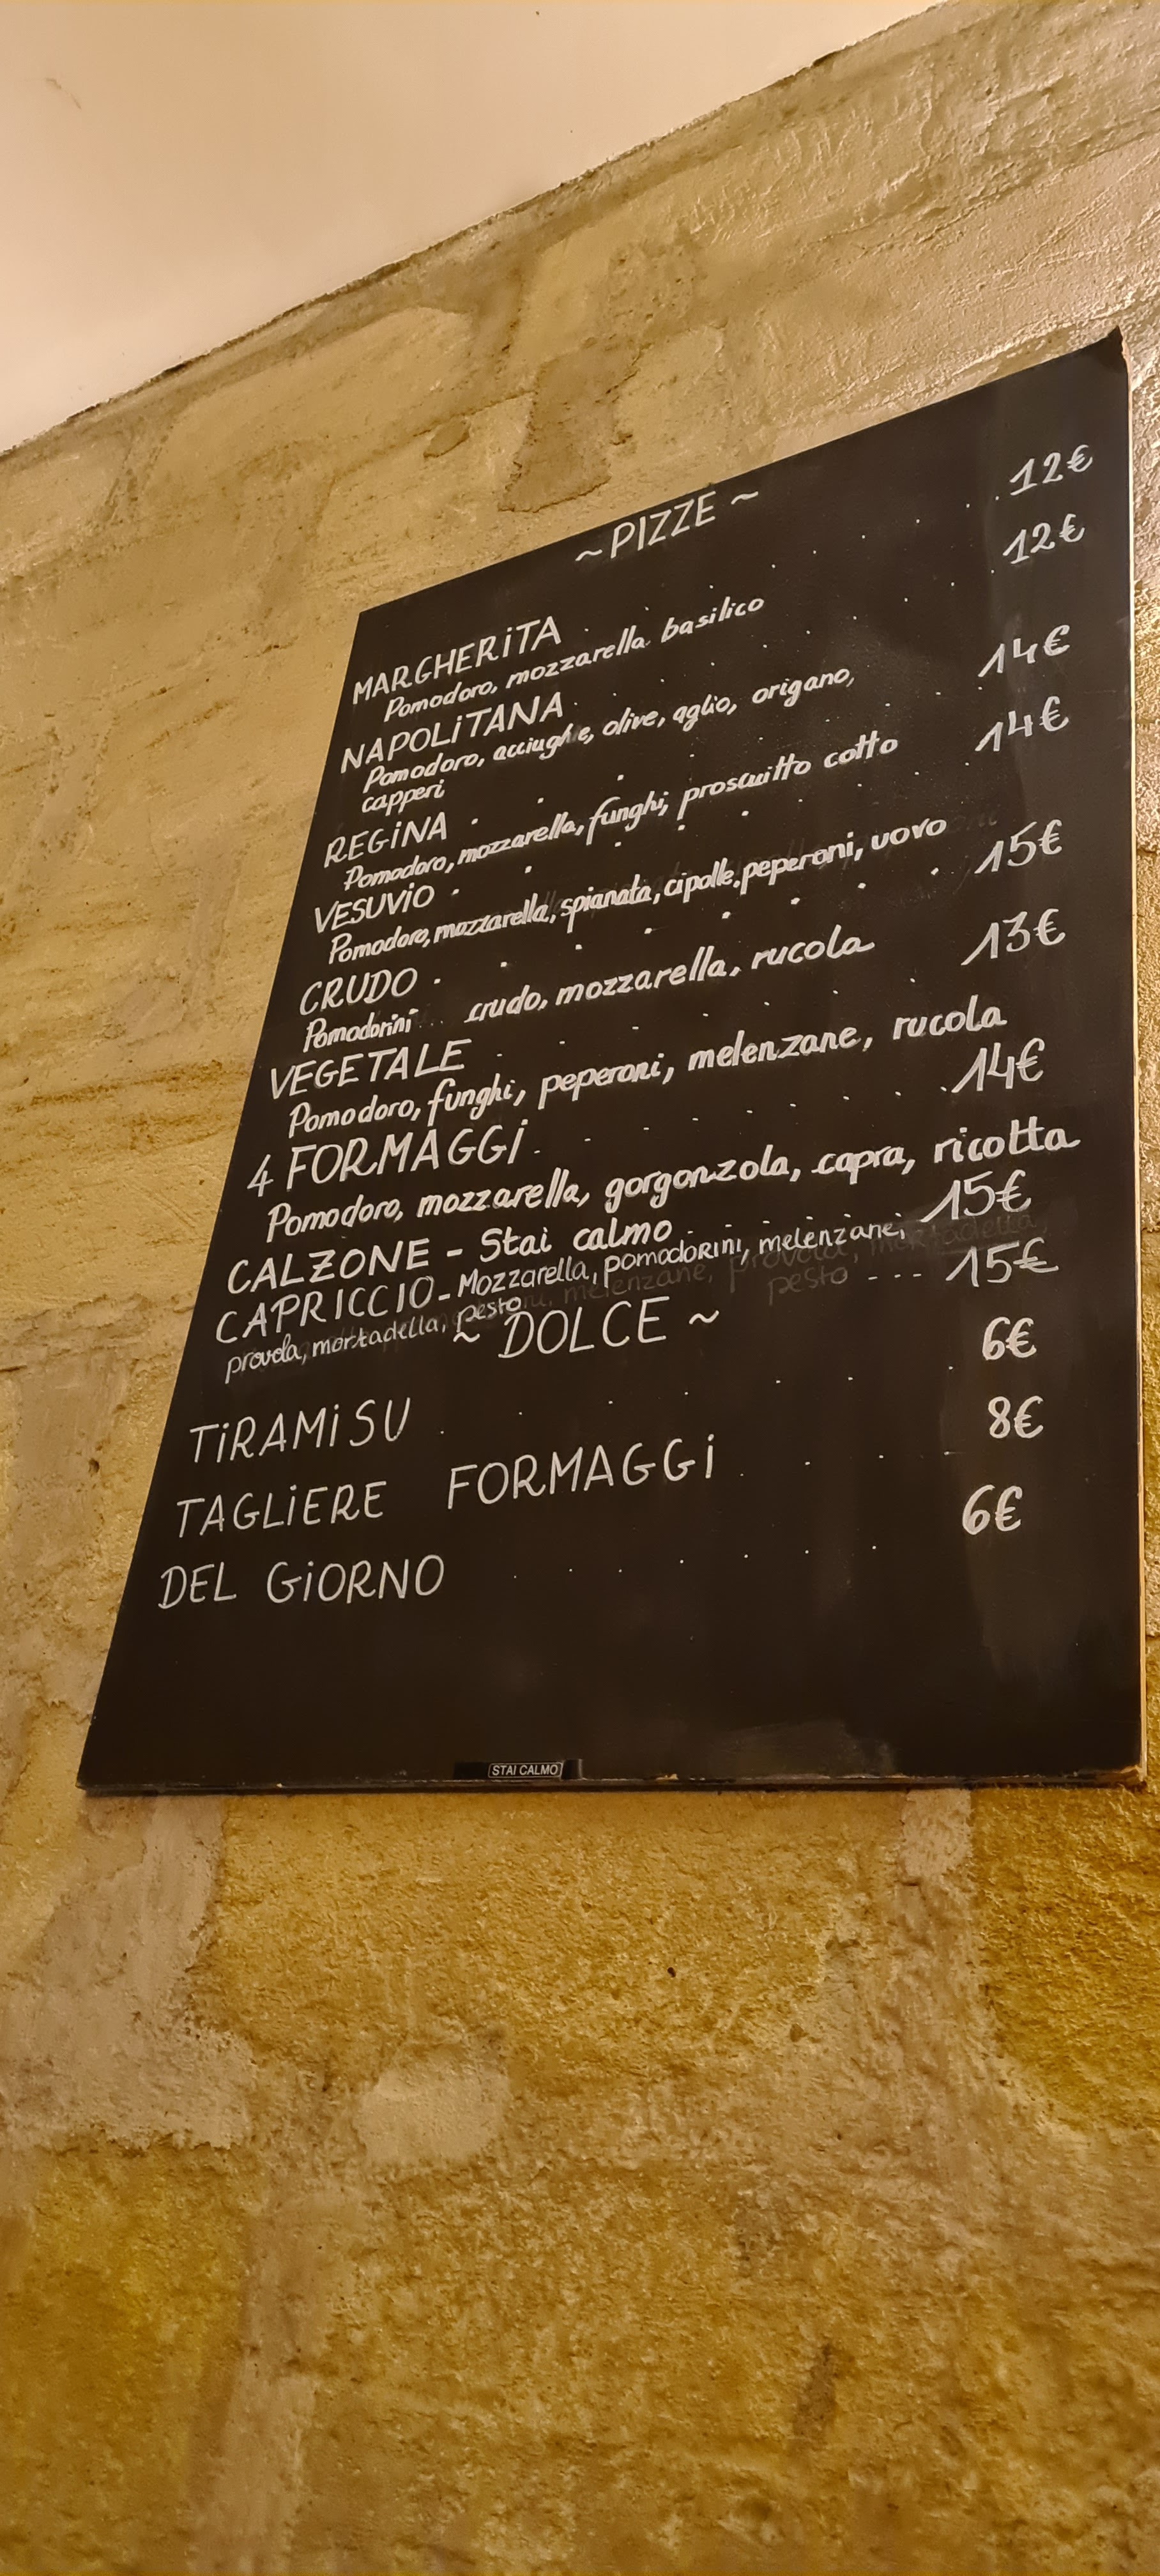 ~ PIZZE ~
MARGHERITA . . . . . . . 12€
Pomodoro, mozzarella. basilico
NAPOLITANA . . . . . . . 12€
Pomodoro, acciughe, olive, aglio, origano,
capperi
REGINA . . . . . . . 14€
Pomodoro, mozzarella, funghi, proscuitto cotto
VESUVIO . . . . . . . 14€
Pomodoro, mozzarella, spianata, cipolle, peperoni, uovo
CRUDO . . . . . . . 15€
Pomodorini crudo, mozzarella, rucola
VEGETALE . . . . . . . 13€
Pomodoro, funghi, peperoni, melenzane, rucola
4 FORMAGGI . . . . . . . 14€
Pomodoro, mozzarella, gorgonzola, capra, ricotta
CALZONE - Stai calmo . . . . . 15€
CAPRICCIO - Mozzarella, pomodorini, melenzane,
provola, mortadella, pesto ---- 15€
~ DOLCE ~
TIRAMISU . . . . . . 6€
TAGLIERE FORMAGGI . . . . 8€
DEL GIORNO . . . . . . 6€
STAI CALMO